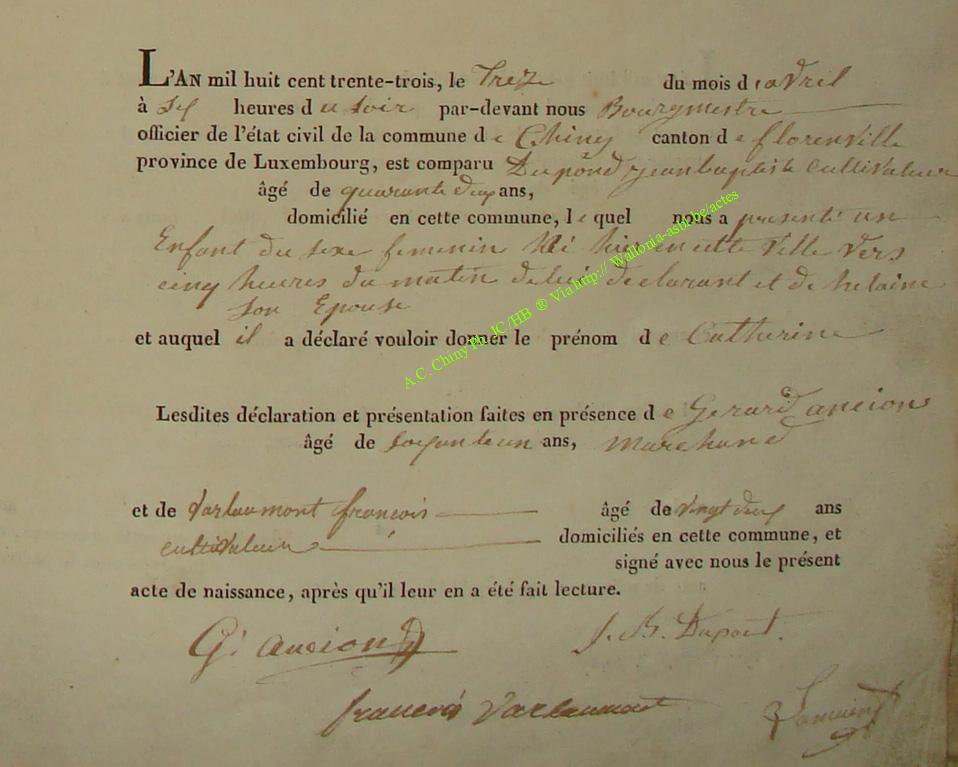 L'AN mil huit cent trente-trois, le Treze du mois d avril
à Six heures d u Soir par-devant nous Bourgmestre
officier de l'état civil de la commune d e Chiny canton d e florenville
province de Luxembourg, est comparu Dupond jean baptiste cultivateur
âgé de quarante deux ans,
domicilié en cette commune, l e quel nous a presenté un
Enfant du sexe feminin Né hier en cette Ville vers
cinq heures du matin de lui declarant et de helaine
Son Epouse
et auquel il a déclaré vouloir donner le prénom d e Catherine
Lesdites déclaration et présentation faites en présence d e Gerard ancion
âgé de soixante un ans, Marchand
et de Varlaumont francois âgé de vingt deux ans
cultivateur domiciliés en cette commune, et
signé avec nous le présent
acte de naissance, après qu'il leur en a été fait lecture.
G. ancion J. B. Dupont.
francois Varlaumont
A.C. Chiny Ph. JC/HB ® Via http:// Wallonia-asbl.be/actes